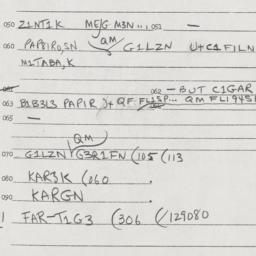 050 Z1NT1K ME/G M3N..., 051 —
060 PAPPIRO,SN QM G1LZN U+C1FILN
M1TABA,K
061 062 — BUT C1GAR
063 B1B3L3 PAPIR )+ QF FL1SP... QM FL1945
065 —
QM
070 G1LZN G3R1FN (105 (113
080 KAR3K (060 .
090 KARGN .
FAR-T1G3 (306 (/129080